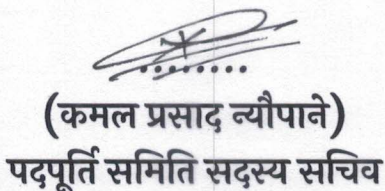 (कमल प्रसाद न्यौपाने)
पदपूर्ति समिति सदस्य सचिव